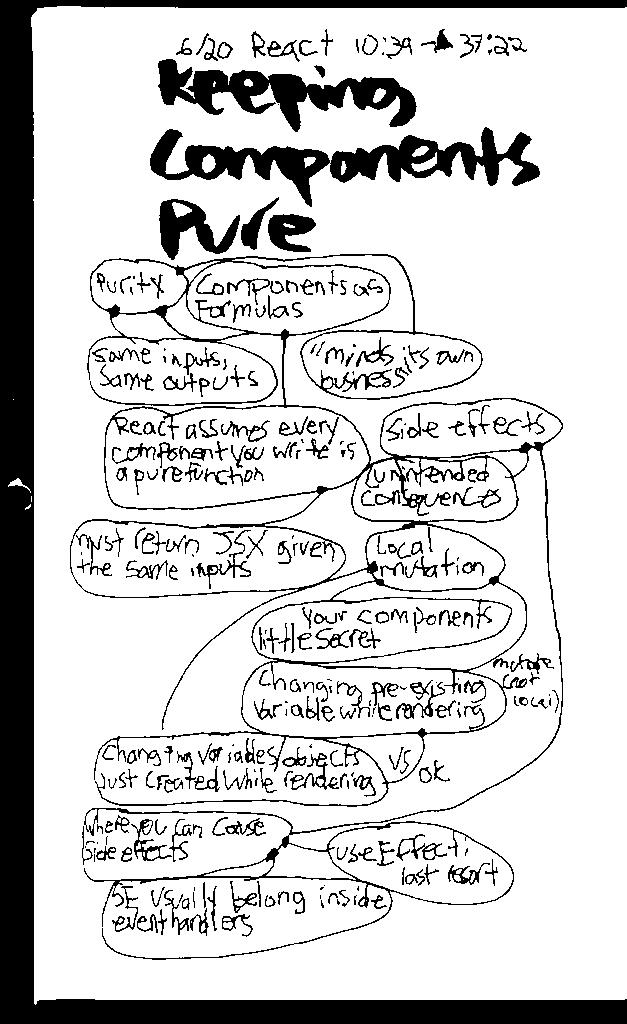 6/20 React 10:39 → 37:22
Keeping
Components
Pure
Purity
Components as
Formulas
same inputs,
same outputs
"minds its own
business"
React assumes every
component you write is
a pure function
Side effects
unintended
consequences
must return JSX given
the same inputs
Local
mutation
your components
little secret
Changing pre-existing
variable while rendering
mutate
(not
local)
Changing variables/objects
just created while rendering
VS
OK
where you can cause
side effects
useEffect,
last resort
SE usually belong inside
event handlers